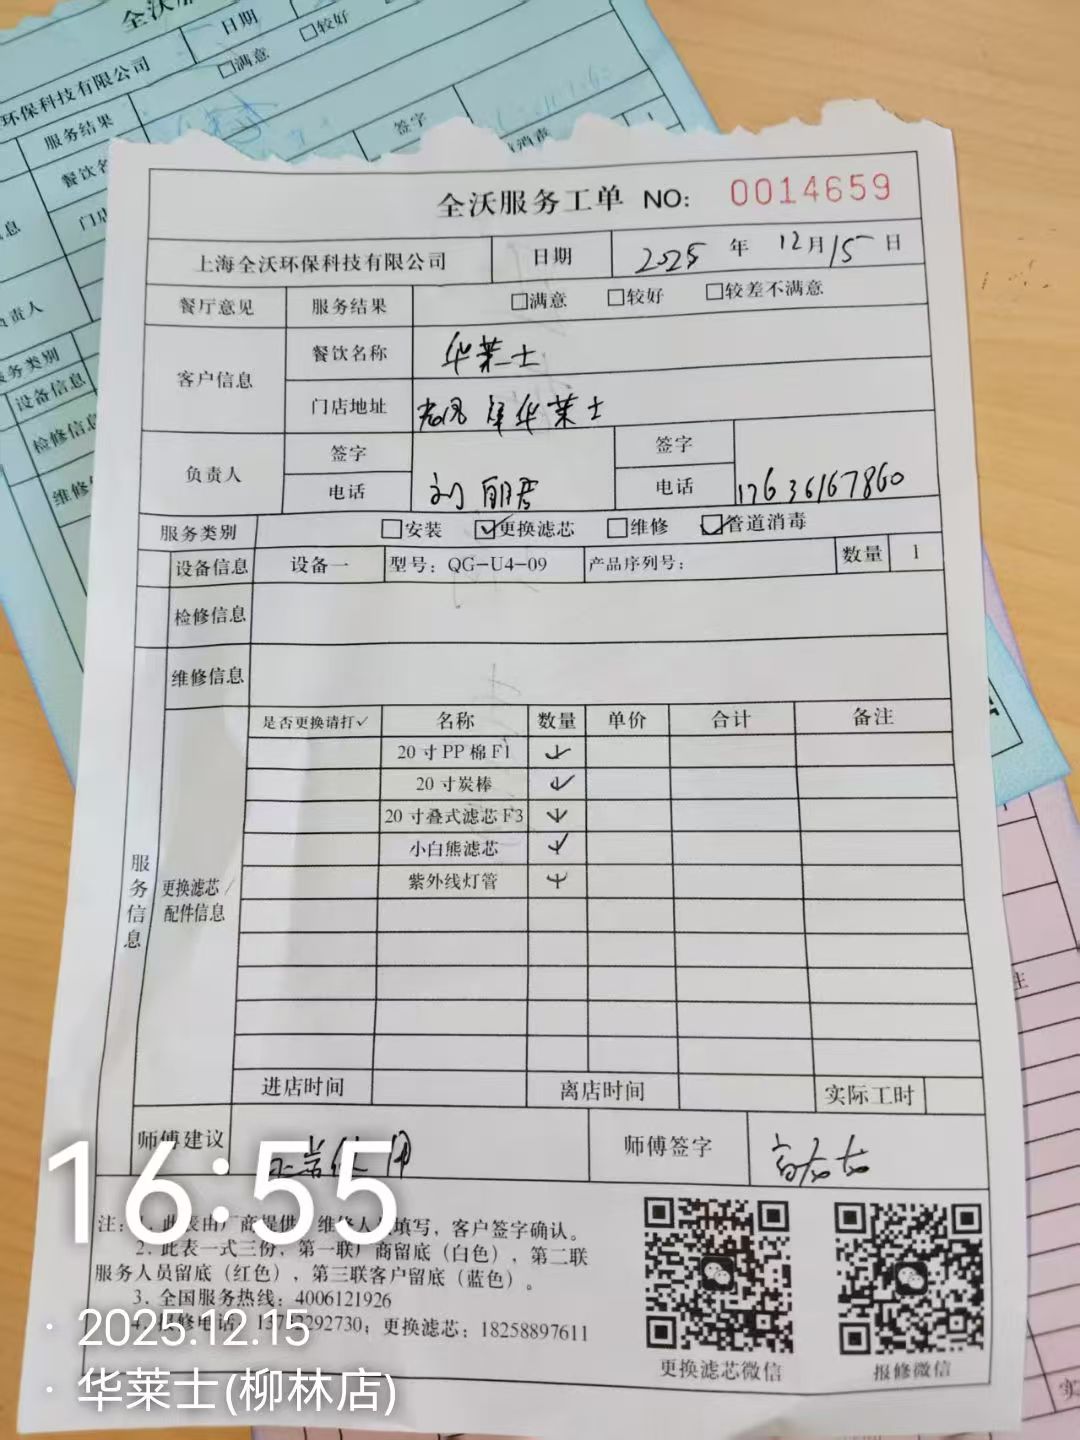 全沃服务工单 NO: 0014659
上海全沃环保科技有限公司 日期 2025 年 12月15日
餐厅意见 服务结果 □满意 □较好 □较差不满意
客户信息 餐饮名称 华莱士
门店地址 华莱士
负责人 签字 签字
电话 刘丽君 电话 17636167860
服务类别 □安装 ☑更换滤芯 □维修 ☑管道消毒
设备信息 设备一 型号: QG-U4-09 产品序列号: 数量 1
检修信息
维修信息
是否更换请打✓ 名称 数量 单价 合计 备注
20寸PP棉F1 ✓
20寸炭棒 ✓
20寸叠式滤芯F3 ✓
小白熊滤芯 ✓
紫外线灯管 ✓
服务信息
更换滤芯/
配件信息
进店时间 离店时间 实际工时
师傅建议 师傅签字
16:55
注: 1. 此表由厂商提供, 维修人员填写, 客户签字确认。
2. 此表一式三份, 第一联厂商留底(白色), 第二联
服务人员留底(红色), 第三联客户留底(蓝色)。
3. 全国服务热线: 4006121926
4. 报修电话: 更换滤芯: 18258897611
更换滤芯微信 报修微信
2025.12.15
华莱士(柳林店)
全沃服
日期
环保科技有限公司
□满意 □较好
服务结果
签字
服务类别
设备信息
检修信息